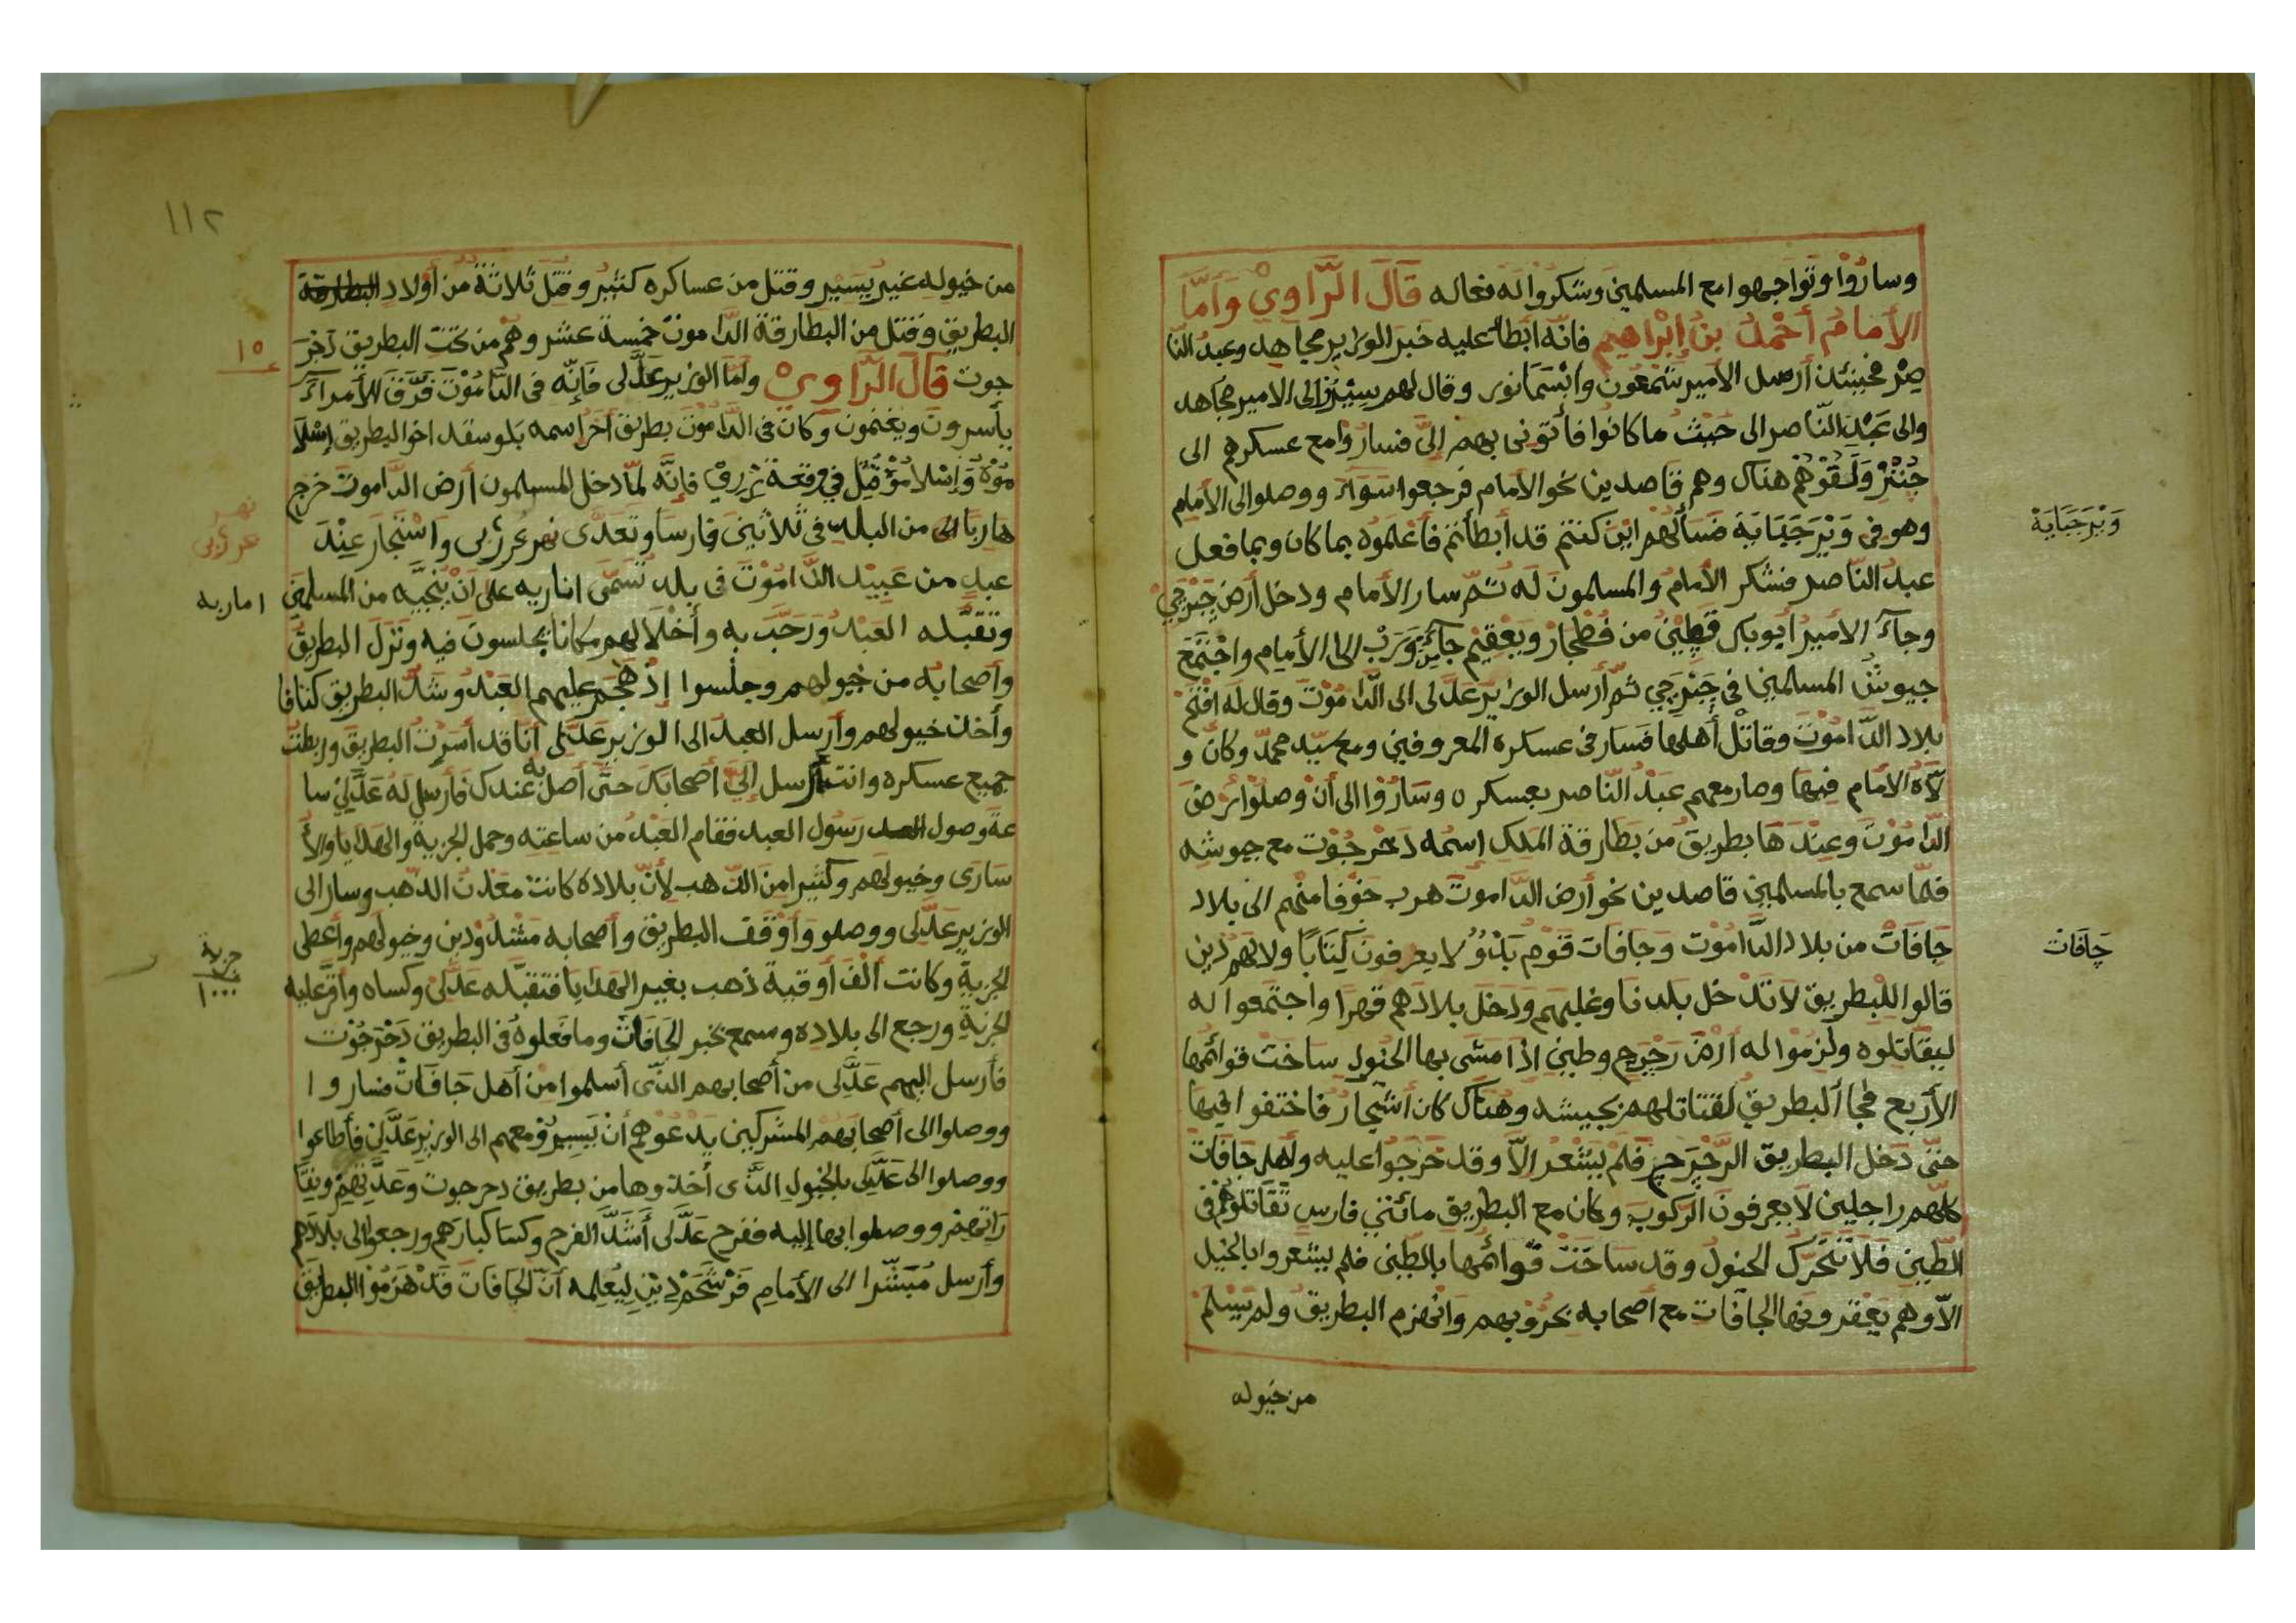 وساروا وتواجهوا مع المسلمين وشكروا له فعاله قال الراوي وأما
الأمام أحمد بن إبراهيم فانه أبطأ عليه خبر الوزير مجاهد وعبد النا
صر فحينئذ أرسل الأمير شمعون وابسمانور وقال لهم سيروا الى الامير مجاهد
والى عبد الناصر الى حيث ما كانوا فأتونى بهم إلىّ فساروا مع عسكرهم الى
جنز ولقوهم هناك وهم قاصدين نحو الامام فرجعوا سواء ووصلوا الى الأمام
وهو فى ويرجباية فسألهم اين كنتم قد أبطأتم فأعلموه بما كان وبما فعل
عبد الناصر فشكر الأمام والمسلمون له ثم سار الأمام ودخل أرض جبرجي
وجاء الأمير أبو بكر قطين من فطجار ويعقيم جاء من ورب الى الأمام واجتمع
جيوش المسلمين فى جبرجي ثم أرسل الوزير عدلى الى الداموت وقال له افتح
بلاد الداموت وقاتل أهلها فسار فى عسكره المعروفين ومع سيد محمد وكان و
لاه الامام فيها وصار معهم عبد الناصر بعسكره وساروا الى أن وصلوا أرض
الداموت وعندها بطريق من بطارقة الملك اسمه دخرجوت مع جيوشه
فلما سمع بالمسلمين قاصدين نحو أرض الداموت هرب خوفا منهم الى بلاد
جافات من بلاد الداموت وجافات قوم بدو لا يعرفون كتابا ولا لهم دين
قالوا للبطريق لا تدخل بلدنا وغلبهم ودخل بلادهم قهرا واجتمعوا له
ليقاتلوه ولزموا له أرض رجرج وطين اذا مشى بها الخيول ساخت قوائمها
الأربع فجاء البطريق لقتاتلهم بجيشه وهناك كان أشجار فاختفوا فيها
حتى دخل البطريق الرجرج فلم يشعر الا وقد خرجوا عليه وأهل جافات
كلهم راجلين لا يعرفون الركوب وكان مع البطريق مائتي فارس تقاتلوهم فى
الطين فلا تتحرك الخيول وقد ساخت قوائمها بالطين فلم يشعروا بالخيل
الا وهم يعقرونها الجافات مع أصحابه بحروبهم وانهزم البطريق ولم يسلم
من خيوله
ويرجباية
جافات
١١٢
من خيوله غير يسير وقتل من عساكره كثير وقتل ثلاثة من أولاد البطارقة
البطريق وقتل من البطارقة الداموت خمسة عشر وهم من تحت البطريق دخر
جوت قال الراوي وأما الوزير عدلى فإنه فى الداموت فرق الأمراء
يأسرون ويغنمون وكان فى الداموت بطريق أخر اسمه بلوسقد اخو البطريق إسلا
موه وإسلامو قتل في وقعة زري فإنه لما دخل المسلمون أرض الداموت خرج
هاربا الى من البلد فى ثلاثين فارسا وتعدى نهر عرربى واستجار عند
عبد من عبيد الداموت فى بلد تسمى اناريه على أن ينجيه من المسلمين
وتقبله العبد ورحب به وأخلا لهم مكانا يجلسون فيه ونزل البطريق
وأصحابه من خيولهم وجلسوا إذ هجم عليهم العبد وشد البطريق كتافا
وأخذ خيولهم وأرسل العبد الى الوزير عدلى أنا قد أسرت البطريق وربطت
جميع عسكره وانت أرسل إلي أصحابك حتى أصل به عندك فأرسل له عدلى سا
عة وصول العبد رسول العبد فقام العبد من ساعته وحمل الجزية والهدايا والأ
سارى وخيولهم وكثيرا من الذهب لأن بلاده كانت معدن الذهب وسار الى
الوزير عدلى ووصلو وأوقف البطريق وأصحابه مشدودين وخيولهم وأعطى
الجزية وكانت ألف أوقية ذهب بغير الهدايا فتقبله عدلى وكساه وأقر عليه
الجزية ورجع الى بلاده وسمع بخبر الجافات وما فعلوه فى البطريق دخرجوت
فأرسل اليهم عدلى من أصحابهم الذى أسلموا من أهل جافات فساروا
ووصلوا الى أصحابهم المشركين يدعوهم أن يسيرو معهم الى الوزير عدلى فأطاعوا
ووصلوا الى عدلى بالخيول الذى أخذوها من بطريق دحرجوت وعدتهم وبقا
راتهم ووصلوا بها إليه ففرح عدلى أشد الفرح وكسا كبارهم ورجعوا الى بلادهم
وأرسل مبشرا الى الأمام فرشحم دين ليعلمه أن الجافات قد هزموا البطريق
١٥
نهر
عرربى
اماريه
جزية
١٠٠٠